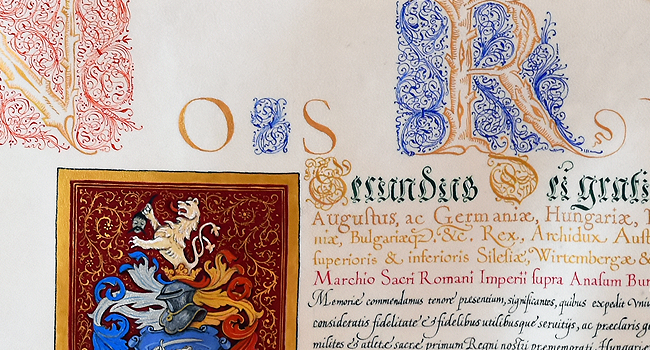 N OIS R S
Secundus Dei grati
Augustus, ac Germaniæ, Hungariæ,
niæ, Bulgariæq. &c. Rex, Archidux Aust
superioris & inferioris Silesiæ, Wirtembergæ &
Marchio Sacri Romani Imperii supra Anasum Bur
Memoriæ commendamus tenore præsentium, significantes, quibus expedit Univer
consideratis fidelitate & fidelibus utilibusque servitijs, ac præclaris g
milites & atletæ sacræ primum Regni nostri præmemorati Hungariæ